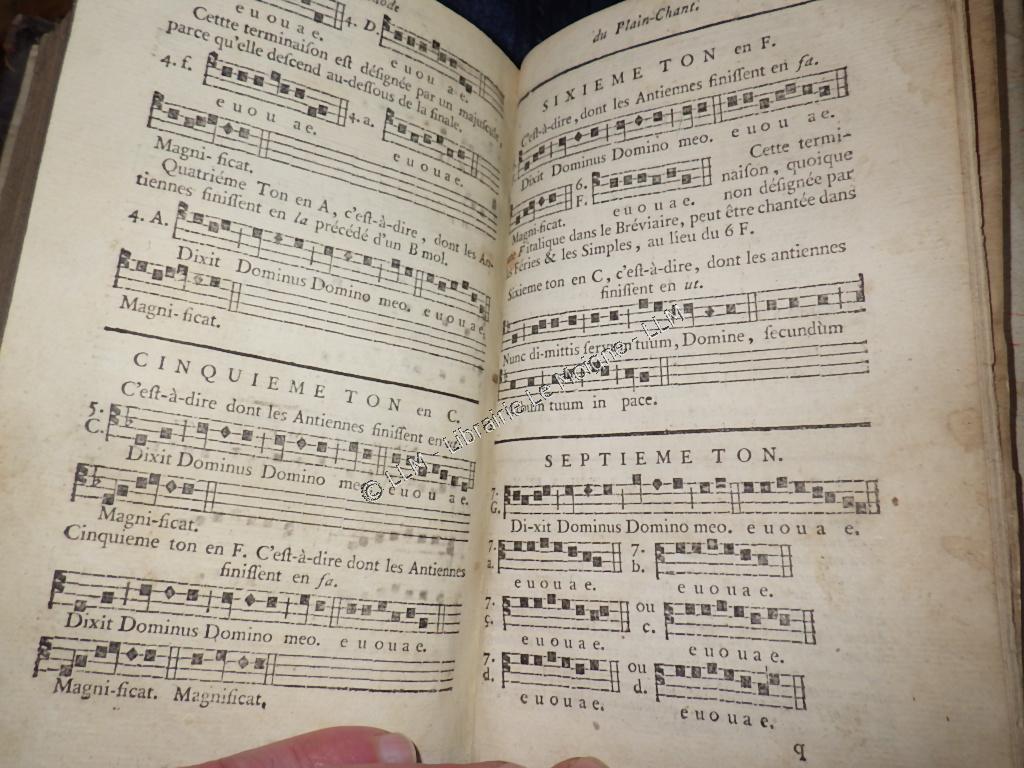 4. D.
e u o u a e.
e u o u a e.
Cette terminaison est désignée par un majuscule,
parce qu'elle descend au-dessous de la finale.
4. f.
e u o u a e.
4. a.
e u o u a e.
Magni-ficat.
Quatriéme Ton en A, c'est-à-dire, dont les An-
tiennes finissent en la précédé d'un B mol.
4. A.
Dixit Dominus Domino meo. e u o u a e.
Magni-ficat.
CINQUIEME TON en C.
C'est-à-dire dont les Antiennes finissent en
5.
C.
Dixit Dominus Domino meo e u o u a e.
Magni-ficat.
Cinquieme ton en F. C'est-à-dire dont les Antiennes
finissent en fa.
Dixit Dominus Domino meo. e u o u a e.
Magni-ficat. Magnificat.
du Plain-Chant.
SIXIEME TON en F.
C'est-à-dire, dont les Antiennes finissent en fa.
Dixit Dominus Domino meo. e u o u a e.
6.
F.
e u o u a e.
Magni-ficat.
Cette termi-
naison, quoique
non désignée par
F italique dans le Bréviaire, peut être chantée dans
Féries & les Simples, au lieu du 6 F.
Sixieme ton en C, c'est-à-dire, dont les antiennes
finissent en ut.
Nunc di-mittis servum tuum, Domine, secundùm
tuum in pace.
SEPTIEME TON.
7.
G.
Di-xit Dominus Domino meo. e u o u a e.
7.
a.
e u o u a e.
7.
b.
e u o u a e.
7.
c.
e u o u a e.
ou
c.
e u o u a e.
7.
d.
e u o u a e.
ou
d.
e u o u a e.
q
© LLM - Librairie Le Moigne - LLM